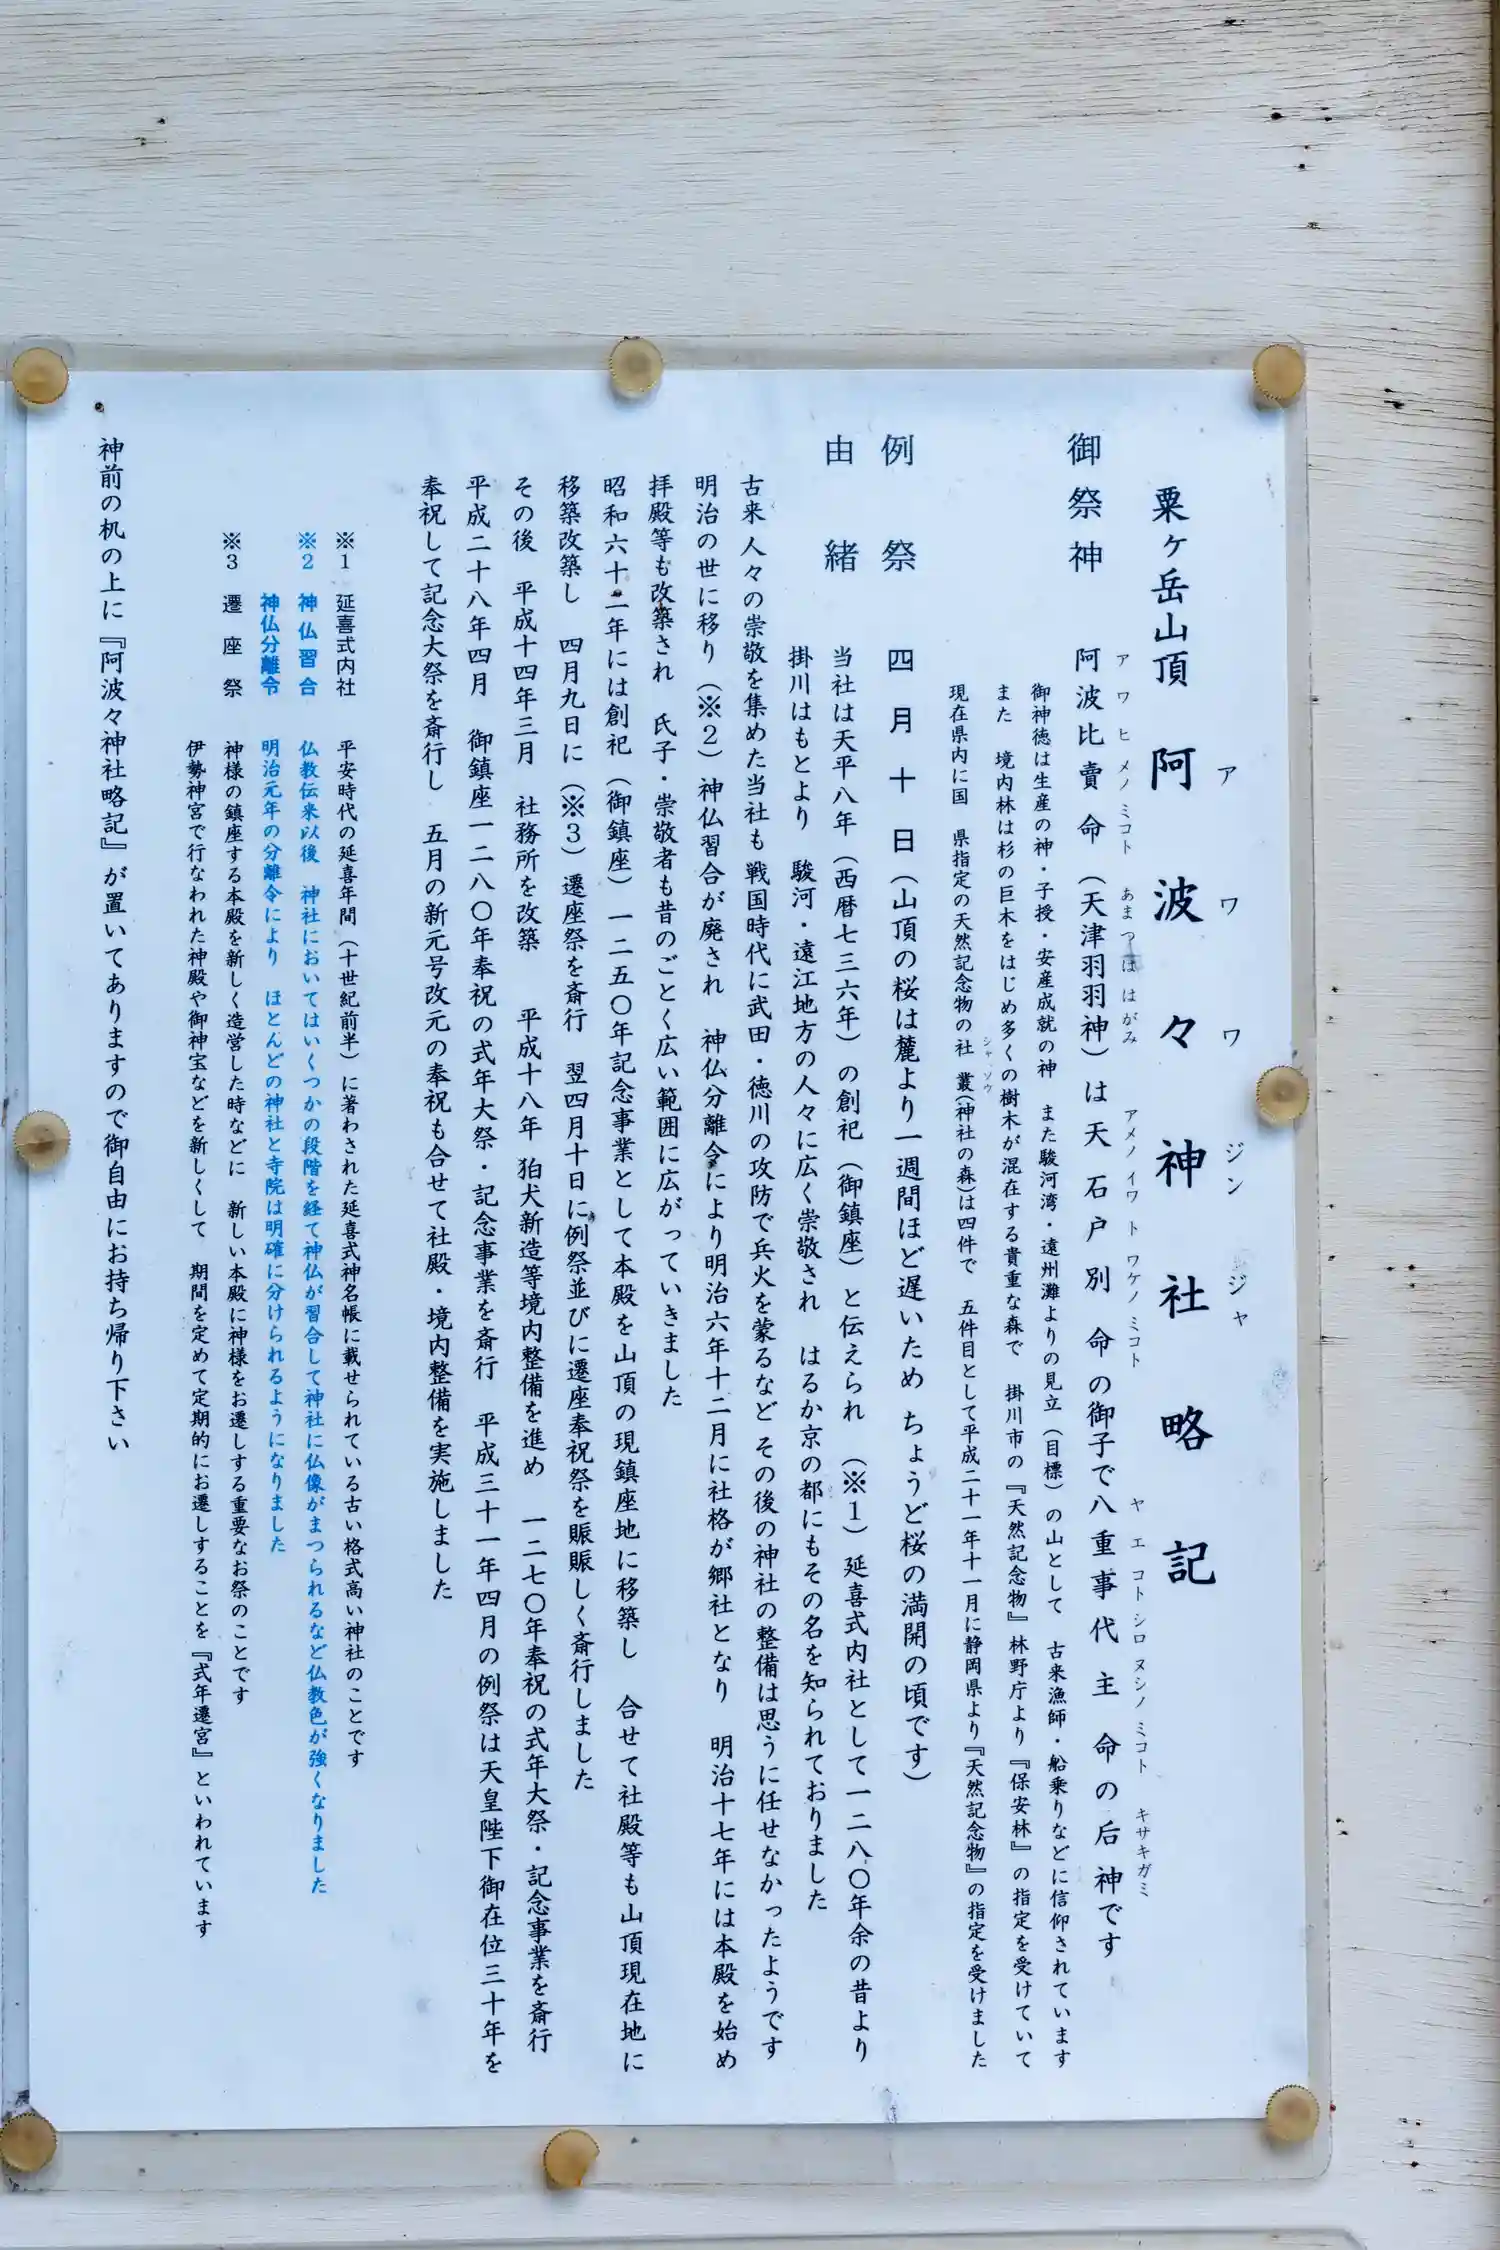 粟ヶ岳山頂 阿波々神社略記
ア ワ ワ ジン ジャ
御祭神 阿波比賣命（天津羽羽神）は天石戸別命の御子で八重事代主命の后神です
ア ワ ヒ メノ ミコト あまつははがみ アメノ イワ ト ワケノ ミコト ヤ エ コト シロ ヌシノ ミコト キサキガミ
御神徳は生産の神・子授・安産成就の神 また駿河湾・遠州灘よりの見立（目標）の山として 古来漁師・船乗りなどに信仰されています
また 境内林は杉の巨木をはじめ多くの樹木が混在する貴重な森で 掛川市の『天然記念物』林野庁より『保安林』の指定を受けていて
現在県内に国 県指定の天然記念物の社叢(神社の森)は四件で 五件目として平成二十一年十一月に静岡県より『天然記念物』の指定を受けました
シャ ソウ
例祭 四月十日（山頂の桜は麓より一週間ほど遅いため ちょうど桜の満開の頃です）
由緒 当社は天平八年（西暦七三六年）の創祀（御鎮座）と伝えられ （※１）延喜式内社として一二八〇年余の昔より
掛川はもとより 駿河・遠江地方の人々に広く崇敬され はるか京の都にもその名を知られておりました
古来人々の崇敬を集めた当社も戦国時代に武田・徳川の攻防で兵火を蒙るなど その後の神社の整備は思うに任せなかったようです
明治の世に移り（※２）神仏習合が廃され 神仏分離令により明治六年十二月に社格が郷社となり 明治十七年には本殿を始め
拝殿等も改築され 氏子・崇敬者も昔のごとく広い範囲に広がっていきました
昭和六十二年には創祀（御鎮座）一二五〇年記念事業として本殿を山頂の現鎮座地に移築し 合せて社殿等も山頂現在地に
移築改築し 四月九日に（※３）遷座祭を斎行 翌四月十日に例祭並びに遷座奉祝祭を賑賑しく斎行しました
その後 平成十四年三月 社務所を改築 平成十八年 狛犬新造等境内整備を進め 一二七〇年奉祝の式年大祭・記念事業を斎行
平成二十八年四月 御鎮座一二八〇年奉祝の式年大祭・記念事業を斎行 平成三十一年四月の例祭は天皇陛下御在位三十年を
奉祝して記念大祭を斎行し 五月の新元号改元の奉祝も合せて社殿・境内整備を実施しました
※１ 延喜式内社 平安時代の延喜年間（十世紀前半）に著わされた延喜式神名帳に載せられている古い格式高い神社のことです
※２ 神仏習合 仏教伝来以後 神社においてはいくつかの段階を経て神仏が習合して神社に仏像がまつられるなど仏教色が強くなりました
神仏分離令 明治元年の分離令により ほとんどの神社と寺院は明確に分けられるようになりました
※３ 遷座祭 神様の鎮座する本殿を新しく造営した時などに 新しい本殿に神様をお遷しする重要なお祭のことです
伊勢神宮で行なわれた神殿や御神宝などを新しくして 期間を定めて定期的にお遷しすることを『式年遷宮』といわれています
神前の机の上に『阿波々神社略記』が置いてありますので御自由にお持ち帰り下さい